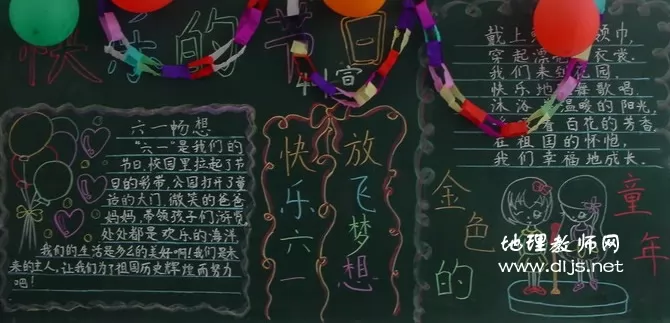 快乐的节日
六一畅想
“六一”是我们的
节日,校园里拉起了节
日的彩带,公园打开了童
话的大门,微笑的爸爸
妈妈,带领孩子们游览,
处处都是欢乐的海洋
我们的生活是多么的美好啊!我们是未
来的主人,让我们为了祖国历史辉煌而努力
吧!
快乐六一
放飞梦想
戴上 领巾,
穿起漂 衣裳.
我们来到花园.
快乐地 舞歌唱.
沐浴 温暖的阳光,
着 百花的芳香.
在祖国的怀抱,
我们幸福地成长.
金色的
童年
地理教师网
www.dljs.net